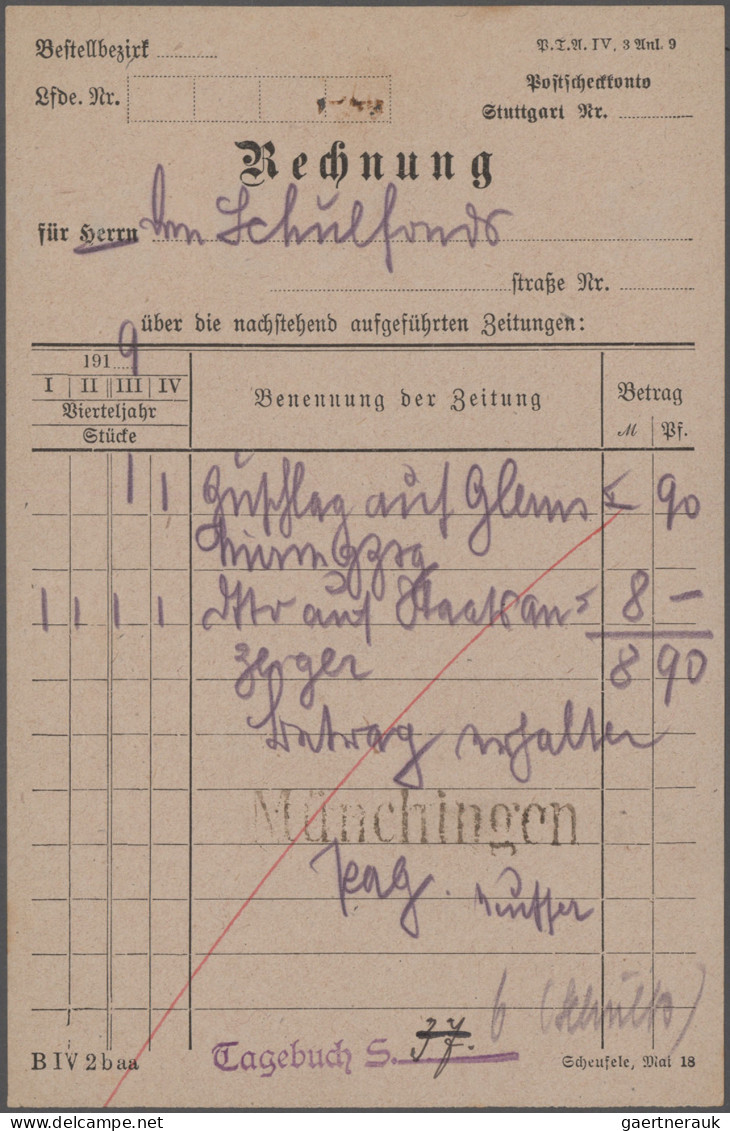 Bestellbezirk
P.T.A. IV, 3 Anl. 9
Lfde. Nr.
Postscheckkonto
Stuttgart Nr.
Rechnung
für Herrn den Schulfonds
straße Nr.
über die nachstehend aufgeführten Zeitungen:
1919
I II III IV
Vierteljahr
Stücke
Benennung der Zeitung
Betrag
M Pf.
1 1 Zuschlag auf Glems- 90
1 1 1 1 dto auf Staatsan= 8 —
zeiger 8 90
Betrag erhalten
Münchingen
Pag.
37
6 (Schulfds)
B IV 2baa
Tagebuch S.
Scheufele, Mai 18
www.gaertnerauk.com